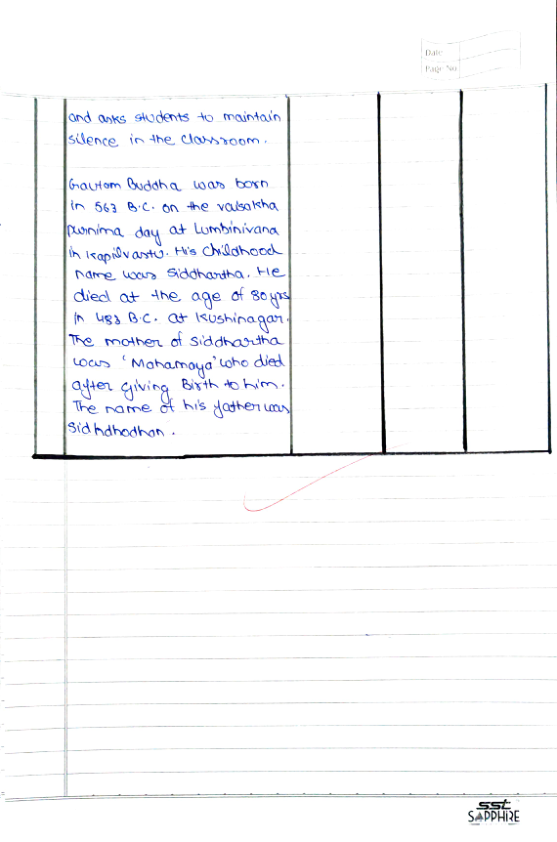 Date
Page No
and asks students to maintain
silence in the classroom.
Gautam Buddha was born
in 563 B.C. on the vaisakha
purnima day at Lumbinivana
in Kapilvastu. His Childhood
name was Siddhartha. He
died at the age of 80 yrs
in 483 B.C. at Kushinagar.
The mother of Siddhartha
was 'Mahamaya' who died
after giving Birth to him.
The name of his father was
Sidhdhodhan.
sst
SAPPHIRE